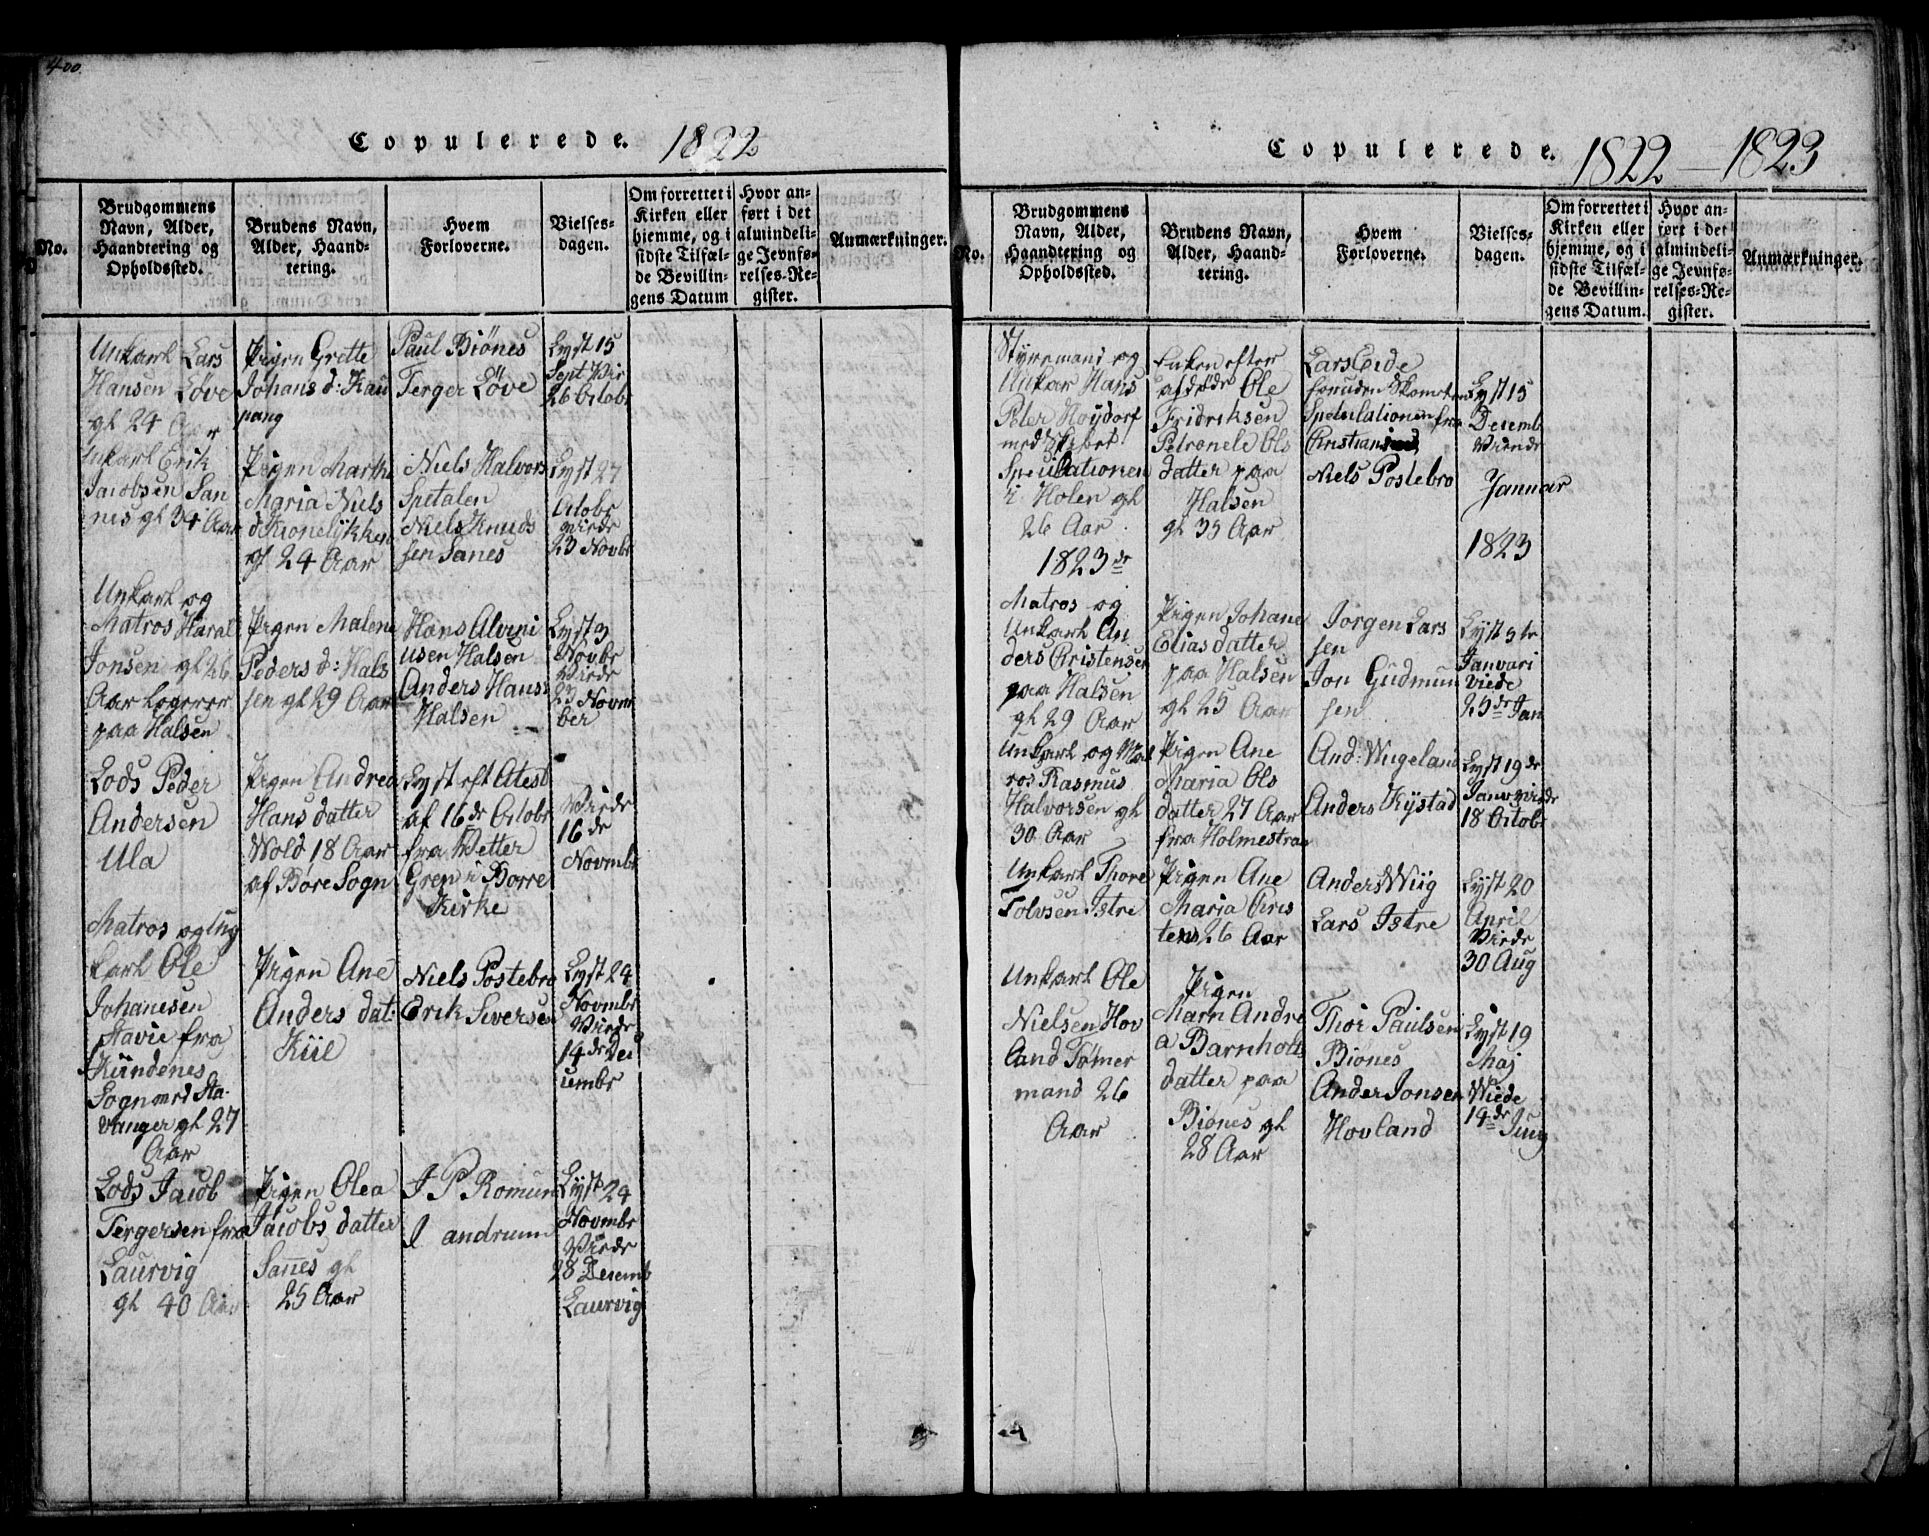 400
Copulerede. 1822
No.
Brudgommens
Navn, Alder,
Haandtering og
Opholdssted.
Brudens Navn,
Alder, Haand-
tering.
Hvem
Forloverne.
Vielses-
dagen.
Om forrettet i
Kirken eller
hjemme, og i
sidste Tilfæl-
de Bevillin-
gens Datum
Hvor an-
ført i det
almindeli-
ge Jevnfø-
relses-Re-
gister.
Anmærkninger.
Unkarl Lars
Hansen Løve
gl 24 Aar
Pigen Grette
Johans d: Kau
pang
Paul Biönes
Terger Löve
Lyst 15
Sept Vir
26 Octobr
unkarl Erik
Jacobsen San
nes gl 34 Aar
Pigen Marthe
Maria Niels
d Kronelÿkken
gl 24 Aar
Niels Halvors
Spetalen
Niels Knuds
sen Sanes
Lyst 27
Octobr
virde
23 Novbr
Unkarl og
Matros Haral
Jonsen gl 26
Aar Logerer
paa Halsen
Pigen Malene
Peders d: Hals
sen gl 29 Aar
Hans Alveni
usen Halsen
Anders Hans
Halsen
Lyst 3
Novbr
Virde
23 Novem
ber
Lods Peder
Andersen
Ula
Pigen Andrea
Hans datter
Wold 18 Aar
af Bore Sogn
Lyst eft Atest
af 16 de Octobr
fra Petter
Gren i Borre
Kirke
Virde
16 de
Novmbr
Matros og Ung
karl Ole
Johanesen
Stavie fra
Kündenes
Sogn ved Sta-
vanger gl 27
Aar
Pigen Ane
Anders dat:
Kiil
Niels Postebro
Erik Siversen
Lyst 24
Novmbr
Virde
14 de Dec
cembr
Lods Jacob
Tergersen fra
Laurvig
gl 40 Aar
Pigen Olea
Jacobs datter
Sanes gl
25 Aar
J P Romun
J andrum
Lyst 24
Novmbr
Virde
28 Decemb
Laurvig
Copulerede. 1822 - 1823
No.
Brudgommens
Navn, Alder,
Haandtering og
Opholdssted.
Brudens Navn,
Alder, Haand-
tering.
Hvem
Forloverne.
Vielses-
dagen.
Om forrettet i
Kirken eller
hjemme, og i
sidste Tilfæl-
de Bevillin-
gens Datum.
Hvor an-
ført i det
almindeli-
ge Jevnfø-
relses-Re-
gister.
Anmærkninger.
Styrmand og
Unkar Hans
Peter Høÿdorf
med Skibet
Speculationen
i Holen gl
26 Aar
Enken efter
afdøde Ole
Fridriksen
Petronele Ols
datter paa
Halsen
gl 35 Aar
Lars Eide
Speculationen fra
Christiansand
Niels Postebro
Lyst 15
Decemb
Virde
Januar
1823
1823 de
Matros og
Unkarl An
ders Christensen
paa Halsen
gl 29 Aar
Pigen Johane
Elias datter
paa Halsen
gl 25 Aar
Jorgen Lars
sen
Jon Gudmun
sen
Lyst 5te
Januari
Viede
25 de Jan
Unkarl og Mat
ros Rasmus
Halvorsen gl
30 Aar
Pigen Ane
Maria Ols
datter 27 Aar
fra Holmestran
And: Wugeland
Anders Kÿstad
Lyst 19 de
Janu virde
18 Octobr
Unkarl Thore
Tolvsen Istre
Pigen Ane
Maria Cris
tens 26 Aar
Anders Wiig
Lars Istre
Lyst 20
April
Virde
30 Aug
Unkarl Ole
Nielsen Hov
land Tømer
mand 26
Aar
Pigen
Marn Andre
a Barnholts
datter paa
Biönes gl
28 Aar
Thor Paulsen
Biönes
Ander Jonsen
Hovland
Lyst 19
Maj
Wiede
19 de Juny